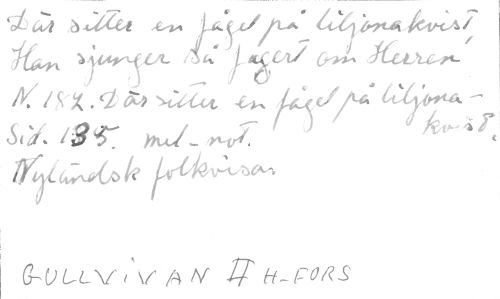 Där sitter en fågel på liljonakvist,
Han sjunger så fagert om Herren
N. 187. Där sitter en fågel på liljona-
kvist.
Sid. 135. mel-not.
Nyländsk folkvisor
GULLVIVAN II H-FORS